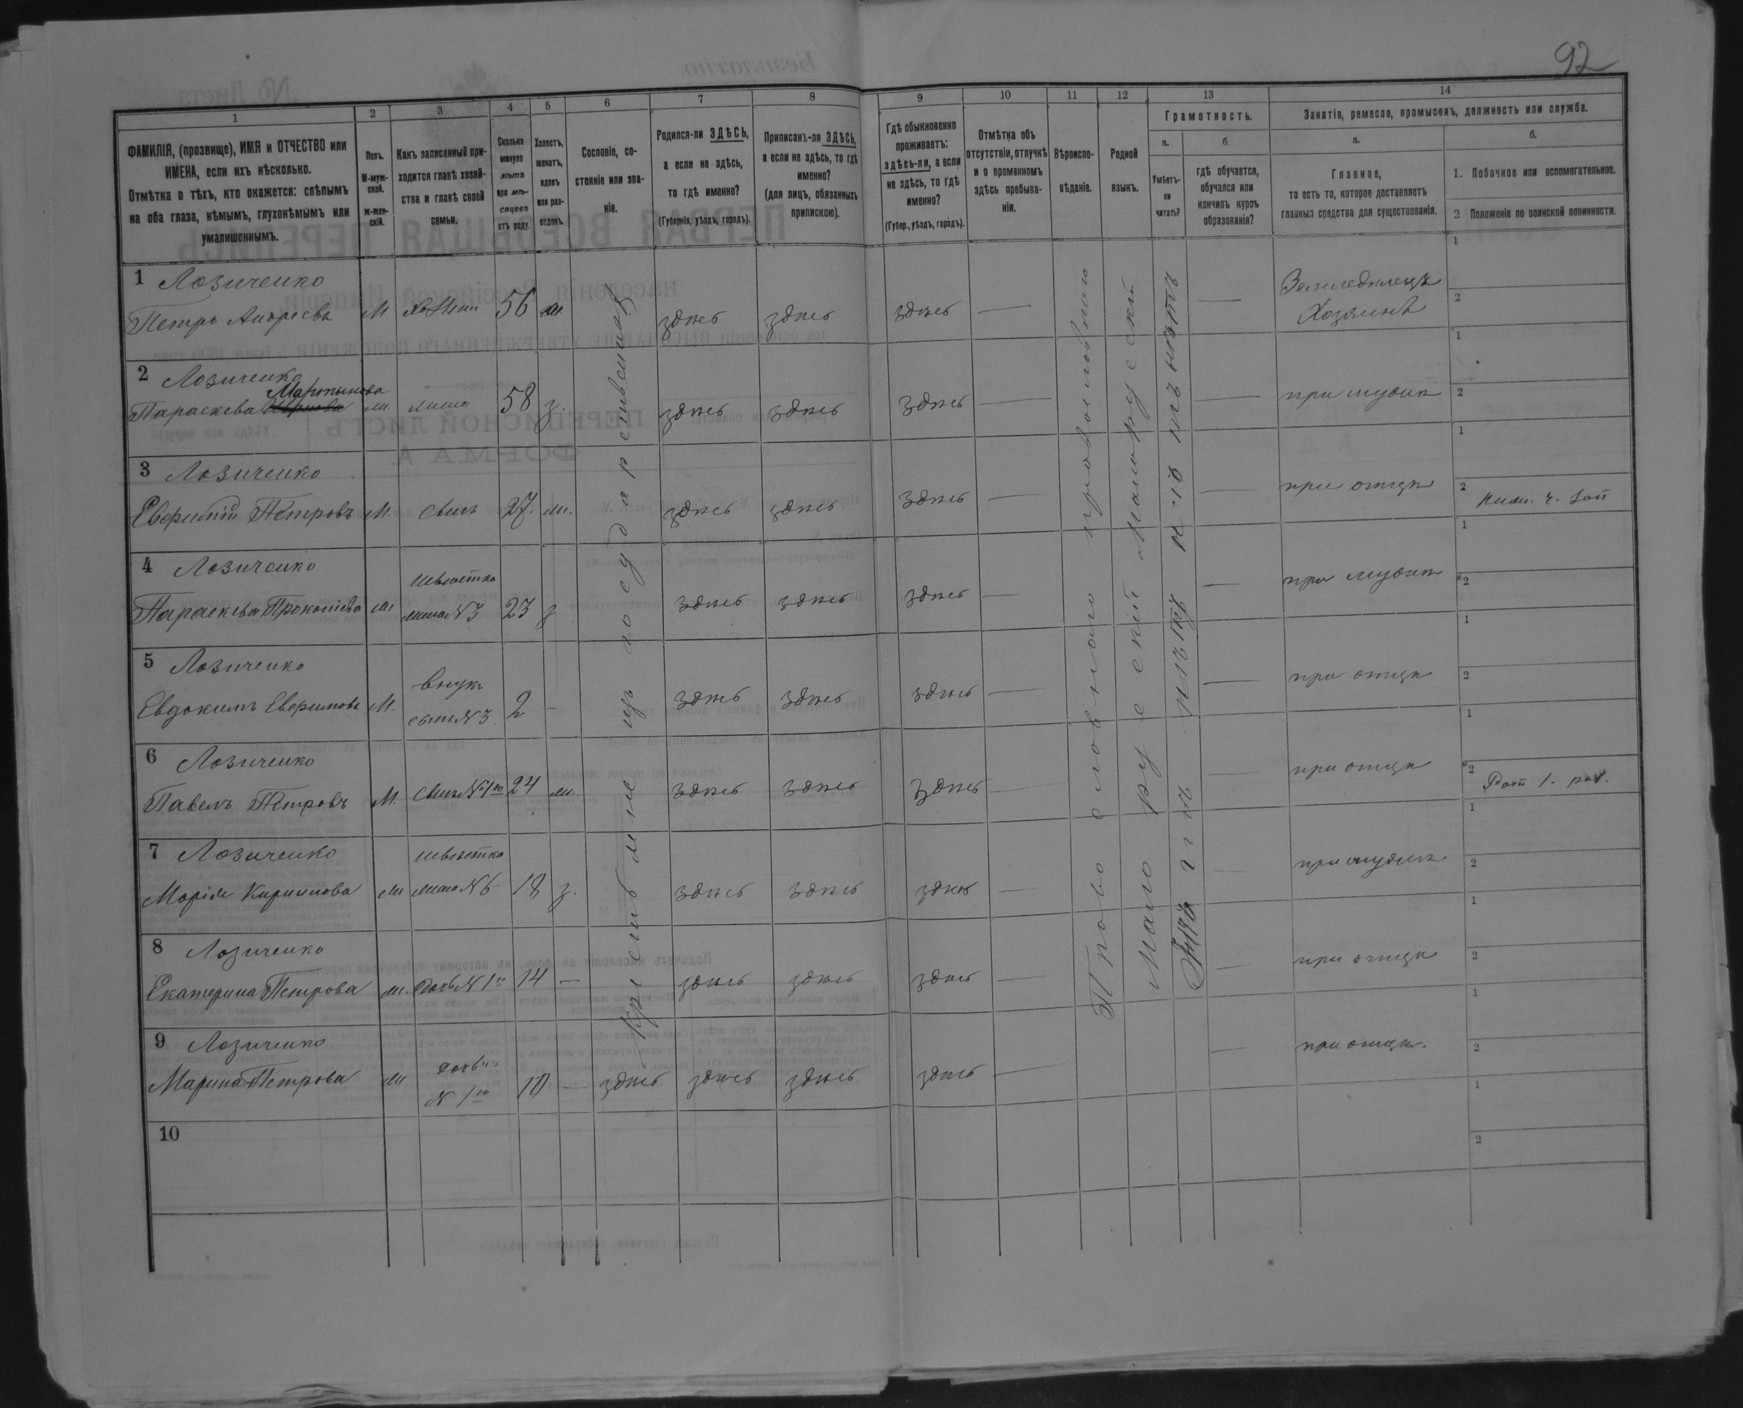 92
1 2 3 4 5 6 7 8 9 10 11 12 13 14
ФАМИЛІЯ, (прозвище), ИМЯ и ОТЧЕСТВО или
ИМЕНА, если ихъ нѣсколько.
Отмѣтка о тѣхъ, кто окажется: слѣпымъ
на оба глаза, нѣмымъ, глухонѣмымъ или
умалишеннымъ.
Полъ.
М-муж-
ской.
ж-жен-
скій.
Какъ записанный при-
ходится главѣ хозяй-
ства и главѣ своей
семьи.
Сколько
минуло
лѣтъ
или мѣ-
сяцевъ
отъ роду.
Холостъ,
женатъ,
вдовъ
или раз-
веденъ.
Сословіе, со-
стояніе или зва-
ніе.
Родился-ли ЗДѢСЬ,
а если не здѣсь,
то гдѣ именно?
(Губернія, уѣздъ, городъ).
Приписанъ-ли ЗДѢСЬ,
а если не здѣсь, то гдѣ
именно?
(для лицъ, обязанныхъ
припискою).
Гдѣ обыкновенно
проживаетъ:
здѣсь-ли, а если
не здѣсь, то гдѣ
именно?
(Губер., уѣздъ, городъ).
Отмѣтка объ
отсутствіи, отлучкѣ
и о временномъ
здѣсь пребыва-
ніи.
Вѣроиспо-
вѣданіе.
Родной
языкъ.
Грамотность.
а.
Умѣетъ-
ли
читать?
б.
гдѣ обучается,
обучался или
кончилъ курсъ
образованія?
Занятія, ремесла, промыселъ, должность или служба.
а.
Главное,
то есть то, которое доставляетъ
главныя средства для существованія.
б.
1. Побочное или вспомогательное.
2 Положеніе по воинской повинности.
1 Лозиченко
Петръ М 56 м. здѣсь здѣсь здѣсь — — Земледѣлецъ
Хозяинъ
1
2
2 Лозиченко
Мартынова
Параскева ж. жена 58 з. здѣсь здѣсь здѣсь — — при мужѣ
1
2
3 Лозиченко
Евфимій Петровъ М. сынъ 27. ж. здѣсь здѣсь здѣсь — — при отцѣ
1
2
4 Лозиченко
невѣстка
Параскева Прокопіева ж жена №3 23 з здѣсь здѣсь здѣсь — — при мужѣ
1
2
5 Лозиченко
внукъ
Евдокимъ Евфимовъ М. сынъ №3. 2 — здѣсь здѣсь здѣсь — — при отцѣ
1
2
6 Лозиченко
Павелъ Петровъ М. сынъ №1го 24 ж. здѣсь здѣсь здѣсь — — при отцѣ
1
2
7 Лозиченко
невѣстка
Марія Кирилова ж жена №6 18 з. здѣсь здѣсь здѣсь — — при мужѣ
1
2
8 Лозиченко
Екатерина Петрова ж. дочь №1го 14 — здѣсь здѣсь здѣсь — — при отцѣ
1
2
9 Лозиченко
Марина Петрова ж дочь
№ 1го 10 — здѣсь здѣсь здѣсь здѣсь — — при отцѣ.
1
2
10
1
2
Крестьяне изъ государственныхъ
Православного православного
Малорусскій Малорусскій